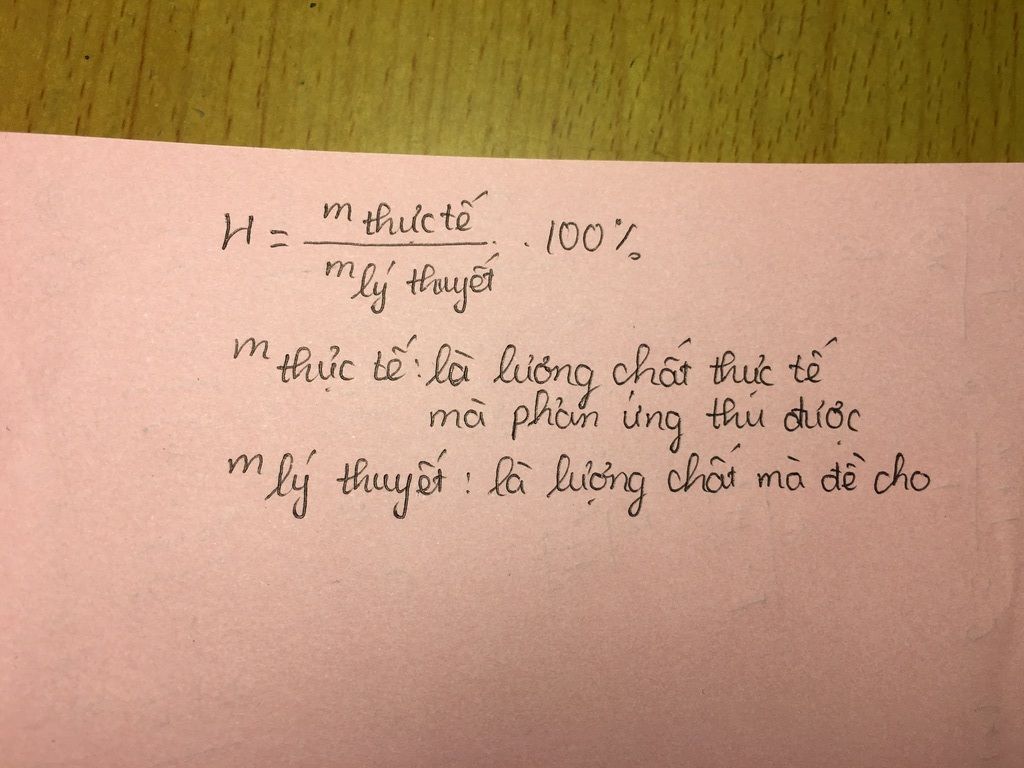 H = m thực tế / m lý thuyết . 100%
m thực tế: là lượng chất thực tế
mà phản ứng thu được
m lý thuyết: là lượng chất mà đề cho